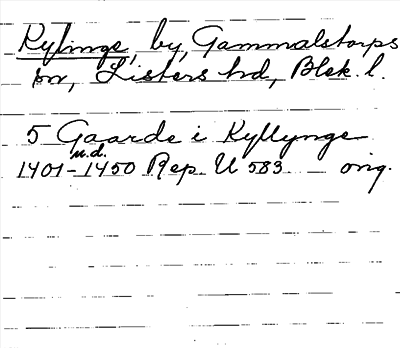 Kylinge, by, Gammalstorps
sn, Listers hd, Blek. l.
5 Gaarde i Kyllynge
u.d.
1401-1450 Rep. U 583 orig.